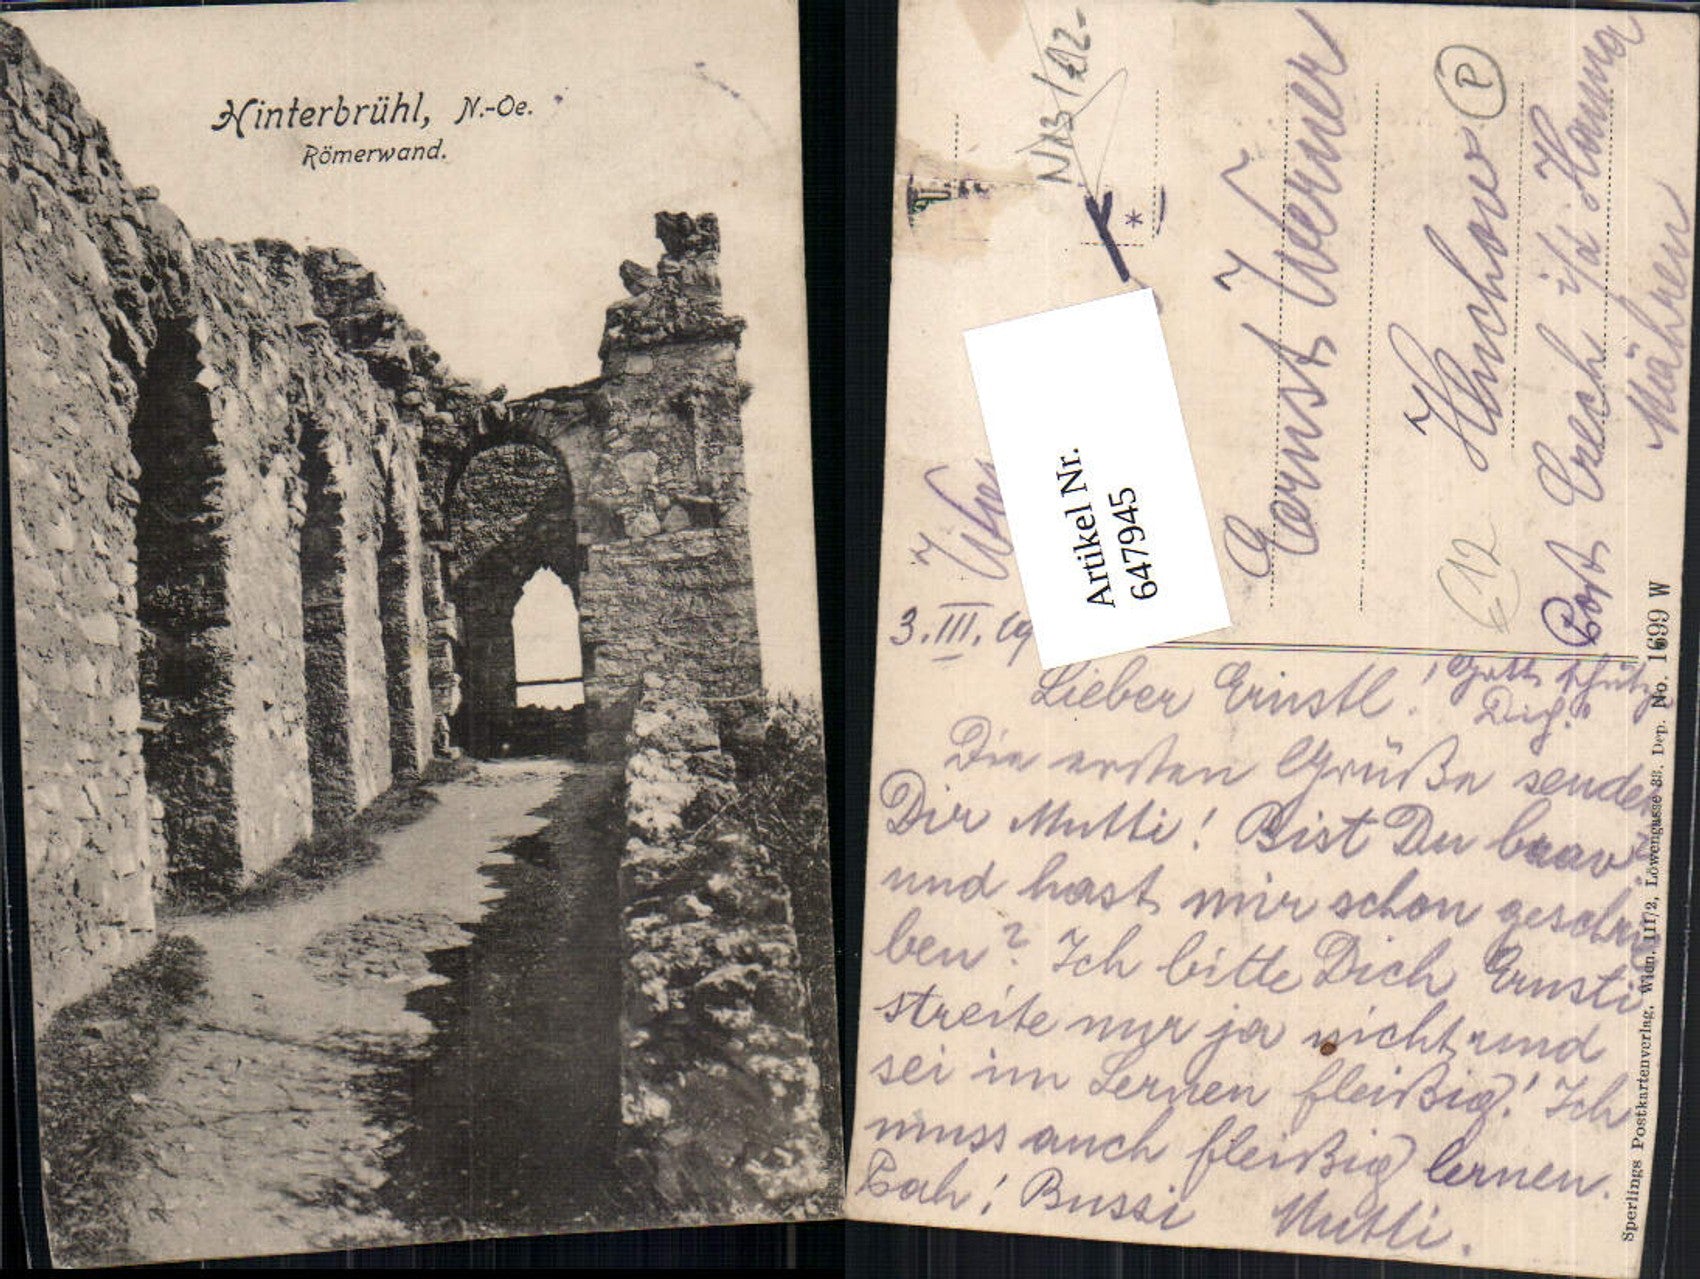 Hinterbrühl, N.-Oe.
Römerwand.
N 13/212-
P
*
Artikel Nr.
647945
3. III. 19
Ernst Werner
Hanna
Mähren
Post
12
Lieber Ernstl!
Gott schütz
Dich!
Die ersten Grüße sendet
Dir Mutti! Bist Du brav
und hast mir schon geschrie
ben? Ich bitte Dich Ernsti
streite nur ja nicht und
sei im Lernen fleißig! Ich
muss auch fleißig lernen.
Pah! Bussi Mutti.
Sperlings Postkartenverlag, Wien, III/2, Löwengasse 33. Dep. No. 1699 W